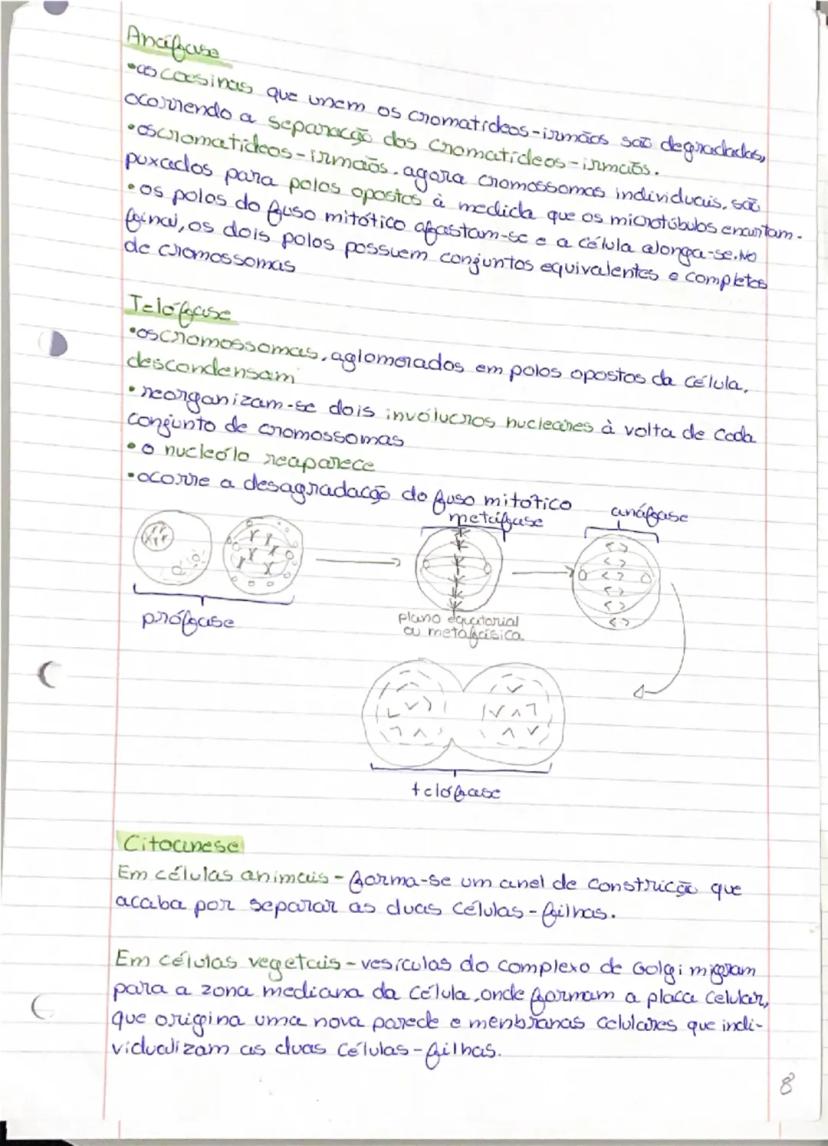 Anáfase
•as coesinas que unem os cromatídeos-irmãos são degradadas,
ocorrendo a separação dos cromatídeos-irmãos.
•os cromatídeos-irmãos, agora cromossomas individuais, são
puxados para polos opostos à medida que os microtúbulos encurtam.
•os polos do fuso mitótico afastam-se e a célula alonga-se. No
final, os dois polos possuem conjuntos equivalentes e completos
de cromossomas
Telófase
•os cromossomas, aglomerados em polos opostos da célula,
descondensam
•reorganizam-se dois invólucros nucleares à volta de cada
conjunto de cromossomas
•o nucleólo reaparece
•ocorre a desagradação do fuso mitótico
metáfase
anáfase
prófase
plano equatorial
ou metafásica
telófase
Citocinese
Em células animais - forma-se um anel de constrição que
acaba por separar as duas células-filhas.
Em células vegetais - vesículas do complexo de Golgi migram
para a zona mediana da célula, onde formam a placa celular,
que origina uma nova parede e menbranas celulares que indi-
vidualizam as duas células-filhas.
8